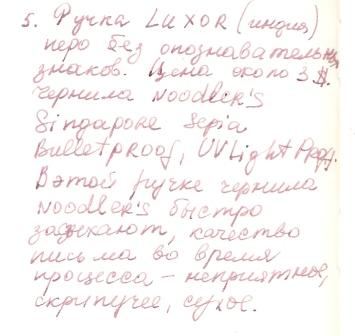 5. Ручка LUXOR (индия)
перо без опознавательных
знаков. Цена около 3 $.
чернила Noodler's
Singapore Sepia
BulletProof, UVLight Proof.
В этой ручке чернила
Noodler's быстро
засыхают, качество
письма во время
процесса – неприятное,
скрипучее, сухое.